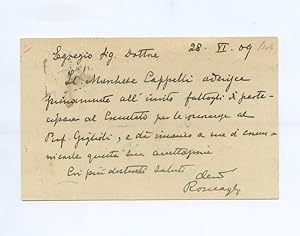 Egregio Sig. Dottore 28 VI 09
Il Marchese Cappelli aderisce
pienamente all' invito fattogli di parte-
cipare al Comitato per le onoranze al
Prof. Giglioli, e dà incarico a me di comu-
nicarle questa sua accettazione
Coi più distinti saluti